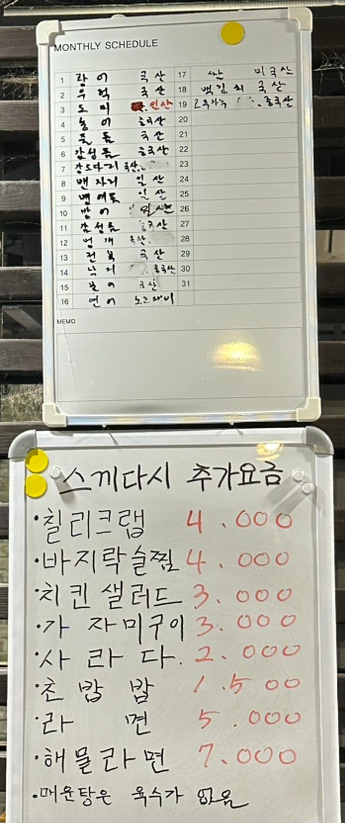 MONTHLY SCHEDULE
1 광어 국산
2 우럭 국산
3 도미 일산
4 농어 중국산
5 돌돔 국산
6 감성돔 중국산
7 강도다리 국산
8 밴자리 일산
9 뱅에돔 일산
10 방어 일산
11 참성돔 중국산
12 멍게 국산
13 전복 국산
14 낙지 중국산
15 문어 국산
16 연어 노르웨이
17 미국산
18 국산
19 중국산
20
21
22
23
24
25
26
27
28
29
30
31
MEMO
스끼다시 추가요금
·칠리크랩 4.000
·바지락술찜 4.000
·치킨샐러드 3.000
·가자미구이 3.000
·사라다. 2.000
·초밥 밥 1.500
·라면 5.000
·해물라면 7.000
·매운탕은 육수가 없음